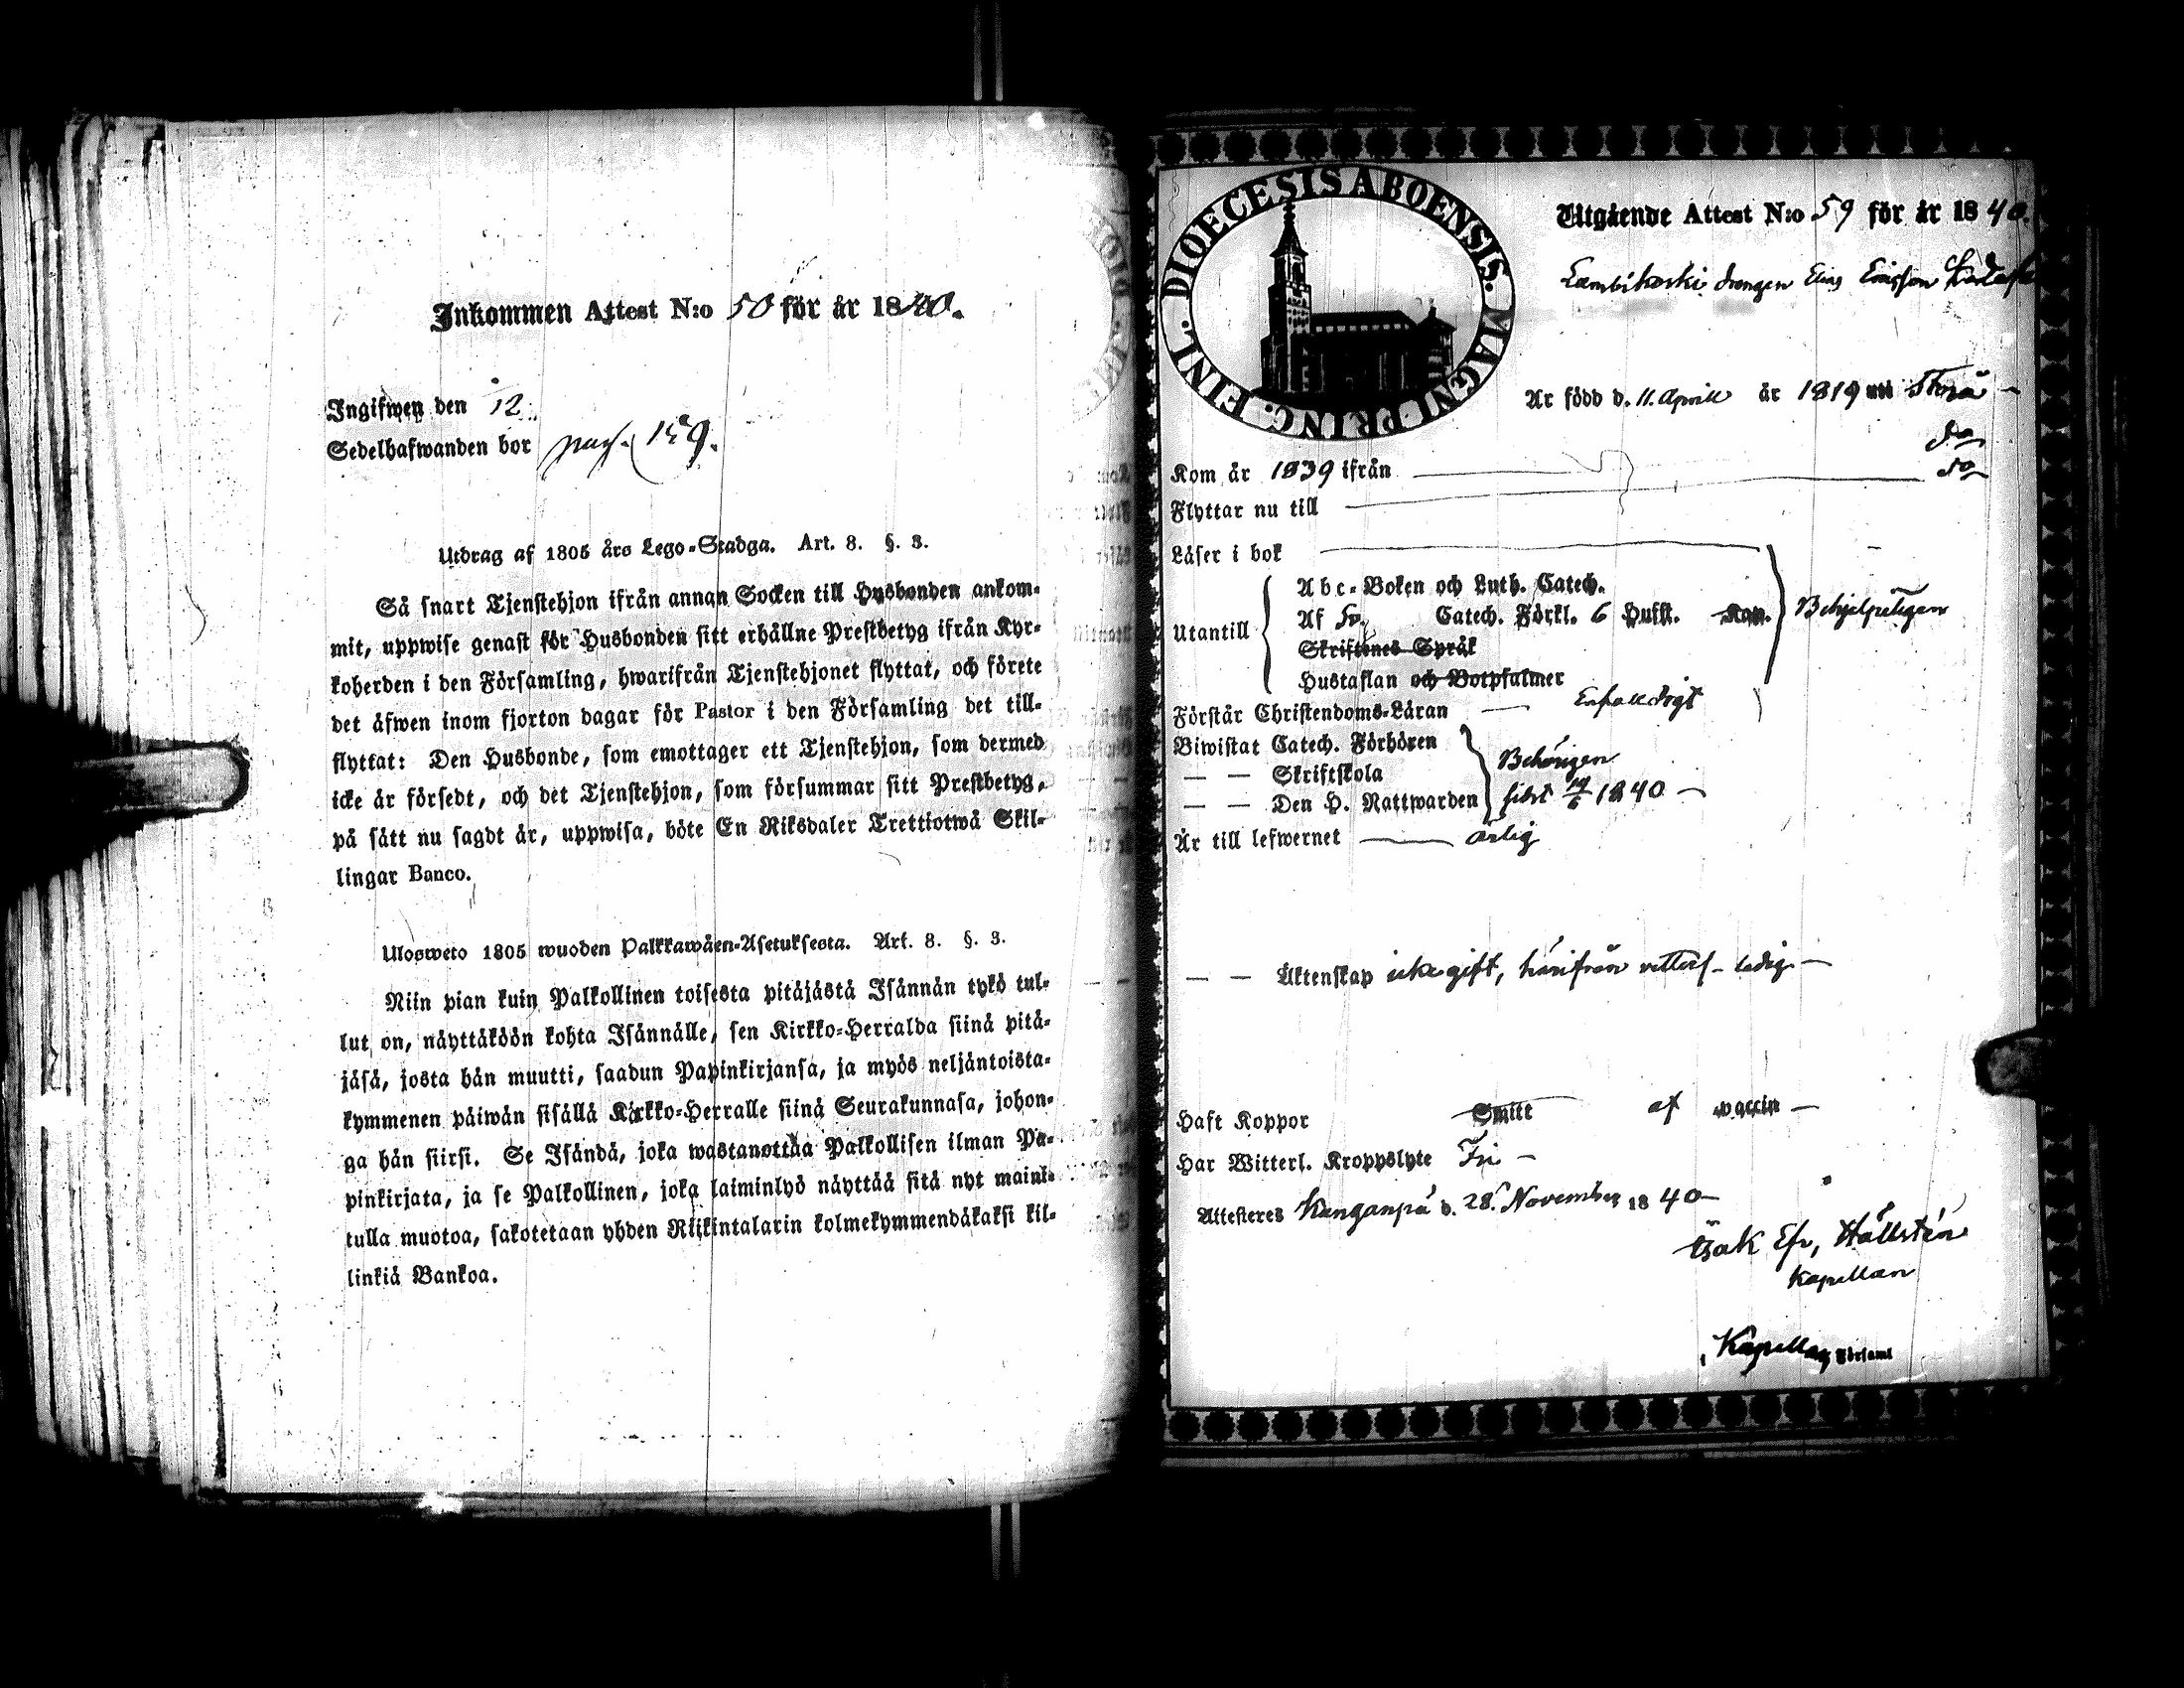 Inkommen Attest N:o 50 för år 1840.
Ingifwen den 12
Sedelhafwanden bor pag. 159.
Utdrag af 1805 års Lego-Stadga. Art. 8. §. 3.
Så snart Tjenstehjon ifrån annan Socken till Husbonden ankom-
mit, uppwise genast för Husbonden sitt erhållne Prestbetyg ifrån Kyr-
koherden i den Församling, hwarifrån Tjenstehjonet flyttat, och förete
det äfwen inom fjorton dagar för Pastor i den Församling det till-
flyttat: Den Husbonde, som emottager ett Tjenstehjon, som dermed
icke är försedt, och det Tjenstehjon, som försummar sitt Prestbetyg,
på sätt nu sagdt är, uppwisa, böte En Riksdaler Trettiotwå Skil-
lingar Banco.
Ulosweto 1805 wuoden Palkkawäen-Asetuksesta. Art. 8. §. 3.
Niin pian kuin Palkollinen toisesta pitäjästä Isännän tykö tul-
lut on, näyttäköön kohta Isännälle, sen Kirkko-Herralda siinä pitä-
jäsä, josta hän muutti, saadun Papinkirjansa, ja myös neljäntoista-
kymmenen päiwän sisällä Kirkko-Herralle siinä Seurakunnasa, johon-
ga hän siirsi. Se Isändä, joka wastanottaa Palkollisen ilman Pa-
pinkirjata, ja se Palkollinen, joka laiminlyö näyttää sitä nyt maini-
tulla muotoa, sakotetaan yhden Riikintalarin kolmekymmendäkaksi kil-
linkiä Bankoa.
DIOECESIS ABOENSIS. MAGNI PRINC. FINL.
Utgående Attest N:o 59 för år 1840.
Lambikoski drengen Elias Ericsson
Är född d. 11. April år 1819 uti
do
Kom år 1839 ifrån do
Flyttar nu till
Läser i bok
Utantill
Abc-Boken och Luth. Catech.
Af Sv. Catech. Förkl. 6 Hufst. Kap. Behjelpeligen
Skriftenes Språk
Hustaflan och Botpsalmer
Förstår Christendoms-Läran Enfaldigt
Biwistat Catech. Förhören
— — Skriftskola Behörigen
— — Den H. Nattwarden sidst 14/6 1840
Är till lefwernet ärlig
— — Äktenskap icke gift, härifrån ledig
Haft Koppor Smitt af vaccin
Har Witterl. Kroppslyte Fri
Attesteres Kanganpä d. 28. November 1840
Isak Efr. Hällstén
Kapellan
i Kapellag Församl